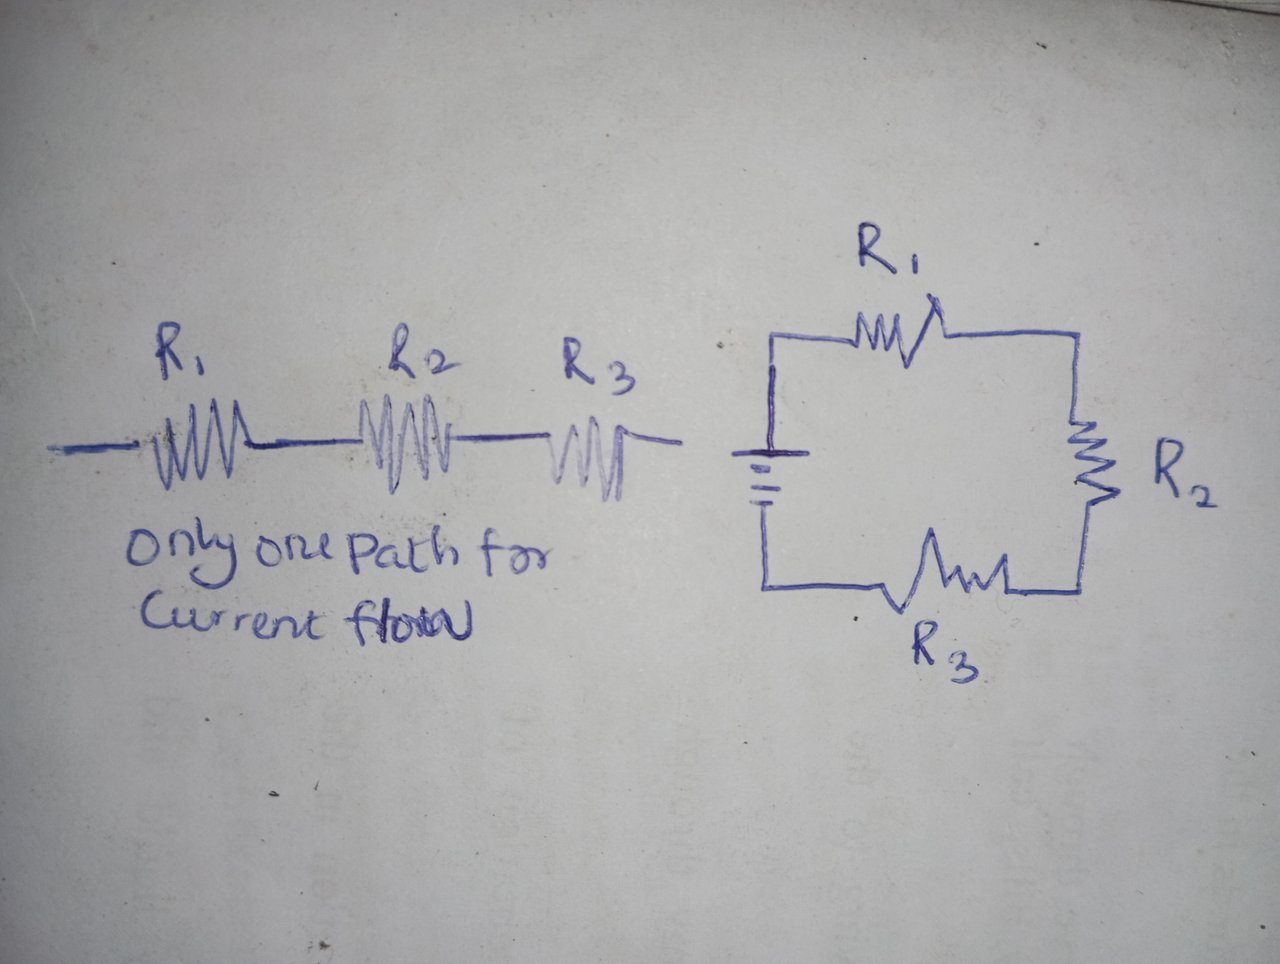 R₁ R₂ R₃
Only one Path for
Current flow
R₁
R₂
R₃